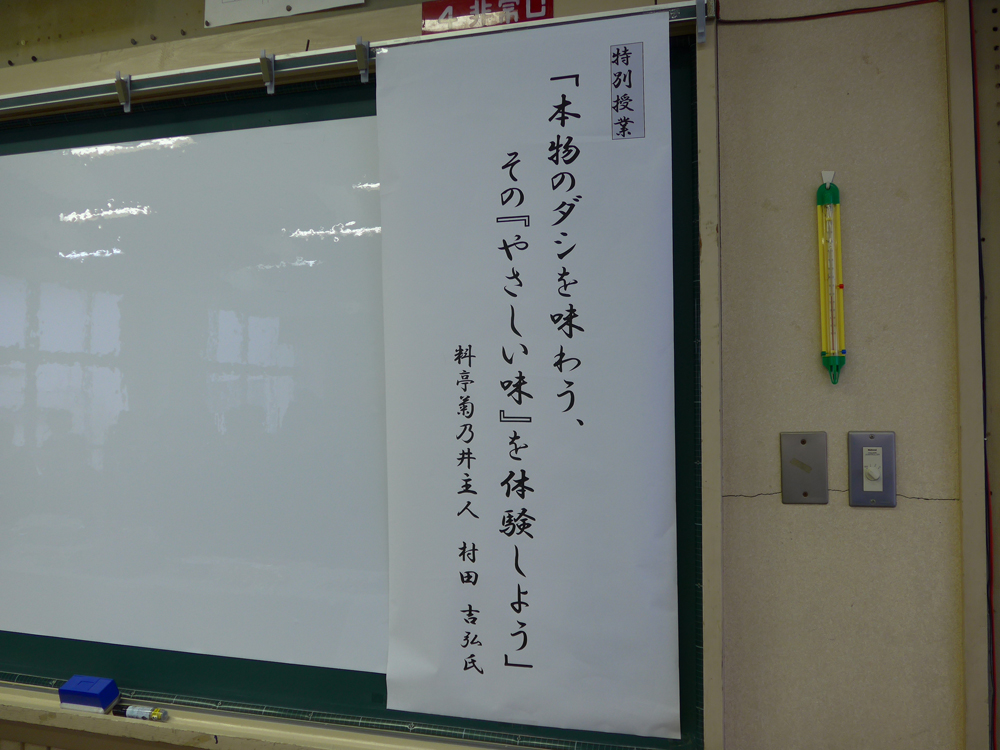 特別授業
「本物のダシを味わう、
その『やさしい味』を体験しよう」
料亭菊乃井主人 村田 吉弘氏
非常口